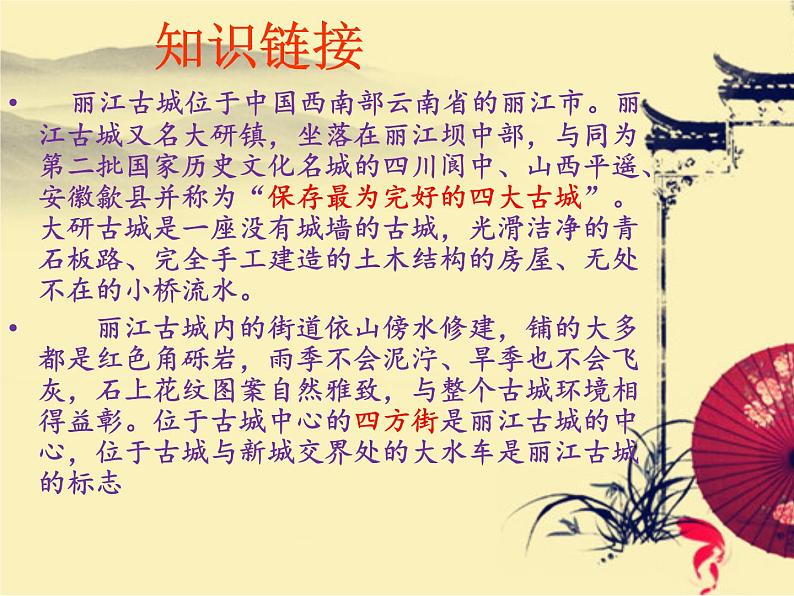 知识链接
• 丽江古城位于中国西南部云南省的丽江市。丽
江古城又名大研镇，坐落在丽江坝中部，与同为
第二批国家历史文化名城的四川阆中、山西平遥、
安徽歙县并称为“保存最为完好的四大古城”。
大研古城是一座没有城墙的古城，光滑洁净的青
石板路、完全手工建造的土木结构的房屋、无处
不在的小桥流水。
• 丽江古城内的街道依山傍水修建，铺的大多
都是红色角砾岩，雨季不会泥泞、旱季也不会飞
灰，石上花纹图案自然雅致，与整个古城环境相
得益彰。位于古城中心的四方街是丽江古城的中
心，位于古城与新城交界处的大水车是丽江古城
的标志